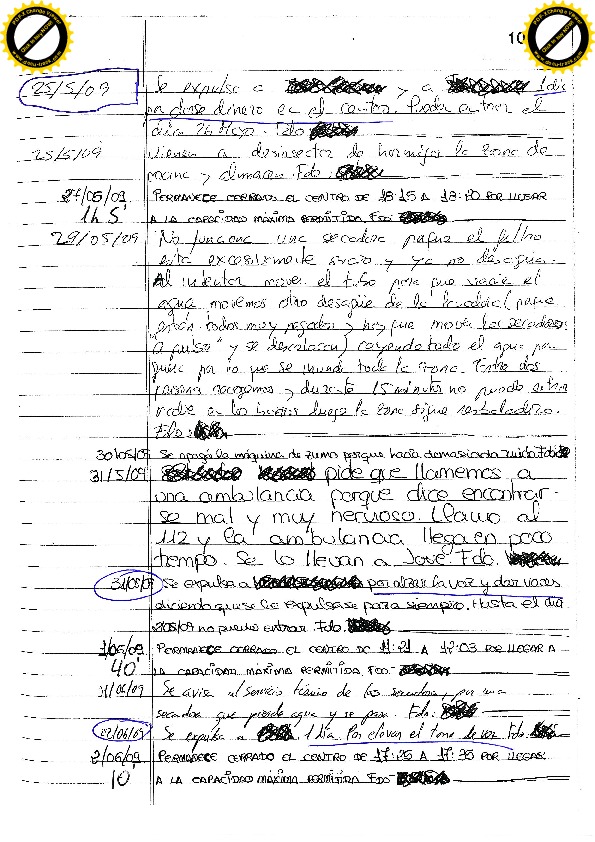 10
25/5/09 Se expulsa a y a 1 día
por darse dinero en el centro. Podrán entrar el
día 26 Mayo. Fdo
25/5/09 Vienen a desinsectar de hormigas la zona de
cocina y almacen. Fdo:
27/05/09 PERMANECE CERRADO EL CENTRO DE 18:15 A 18:20 POR LLEGAR
1h 5' A LA CAPACIDAD MÁXIMA PERMITIDA FDO
29/05/09 No funciona una secadora porque el filtro
está excesivamente sucio y ya no desagua.
Al intentar mover el tubo para que vacíe el
agua movemos otro desagüe de la lavadora (porque
están todos muy pegados y hay que mover las secadoras
a pulso" y se descolocan) cayendo todo el agua por
no que se inunde toda la zona. Entre dos
personas recogemos y durante 15 minutos no puede entrar
nadie a los baños luego la zona sigue resbaladiza.
Fdo:
30/05/09 Se apagó la máquina de zumo porque hacía demasiado ruido Fdo
31/5/09 pide que llamemos a
una ambulancia porque dice encontrar-
se mal y muy nervioso. Llamo al
112 y la ambulancia llega en poco
tiempo. Se lo llevan a José. Fdo.
31/05/09 Se expulsa a por alzar la voz y dar voces
diciendo que se le expulsase para siempre. Hasta el día
no puede entrar. Fdo.
1/06/09 PERMANECE CERRADO EL CENTRO DE 11:21 A 12:03 POR LLEGAR A
40' LA CAPACIDAD MÁXIMA PERMITIDA FDO
1/06/09 Se avisa al servicio técnico de las secadoras, por una
secadora que pierde agua y se para. Fdo:
02/06/09 Se expulsa a 1 día. Por elevar el tono de voz. Fdo.
2/06/09 PERMANECE CERRADO EL CENTRO DE 17:25 A 17:35 POR LLEGAR
10 A LA CAPACIDAD MÁXIMA PERMITIDA FDO